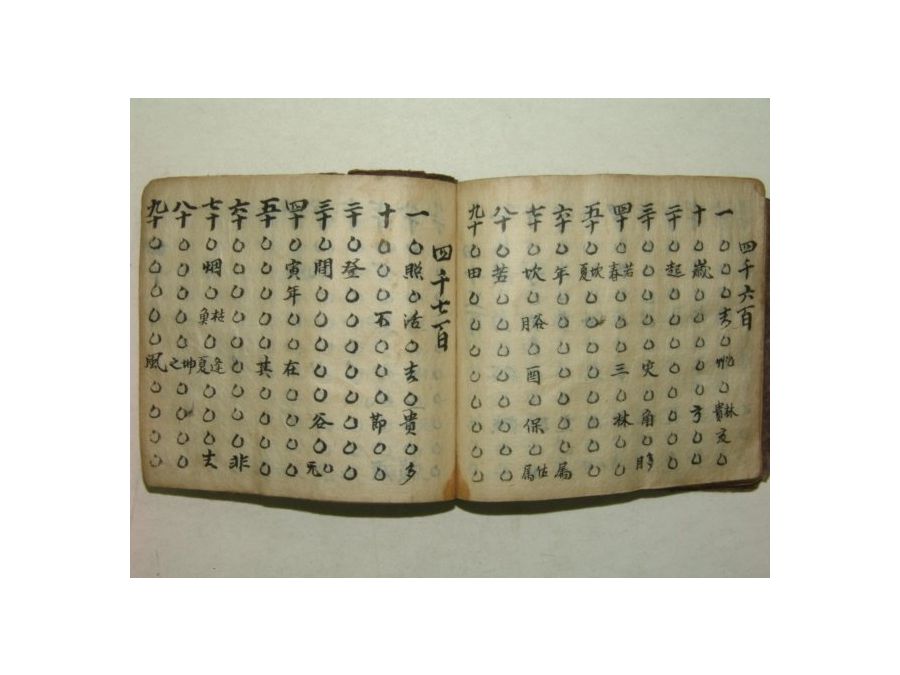 四千六百
一○○○吉○○林貴亥○
十○歲○○○○○亨○○
二十○起○○○○○○○○
三十○○○○○灾○角○
四十○若春○○○三○林○○
五十○坎夏○○○○○○○○
六十○年○○○○○○○属
七十○坎○谷月○酉○保○佐属
八十○若○○○○○○○○
九十○田○○○○○○○○
四千七百
一○照○活○吉○貴○多
十○○○石○○○節○○
二十○登○○○○○○○○
三十○間○○○○○谷○元
四十○寅年○○在○○○○
五十○○○○○其○○○○
六十○○○○○○○○○非
七十○烟○杜魚○逢夏○○○夫
八十○○○○○坤之○○○○
九十○○○○○風○○○○